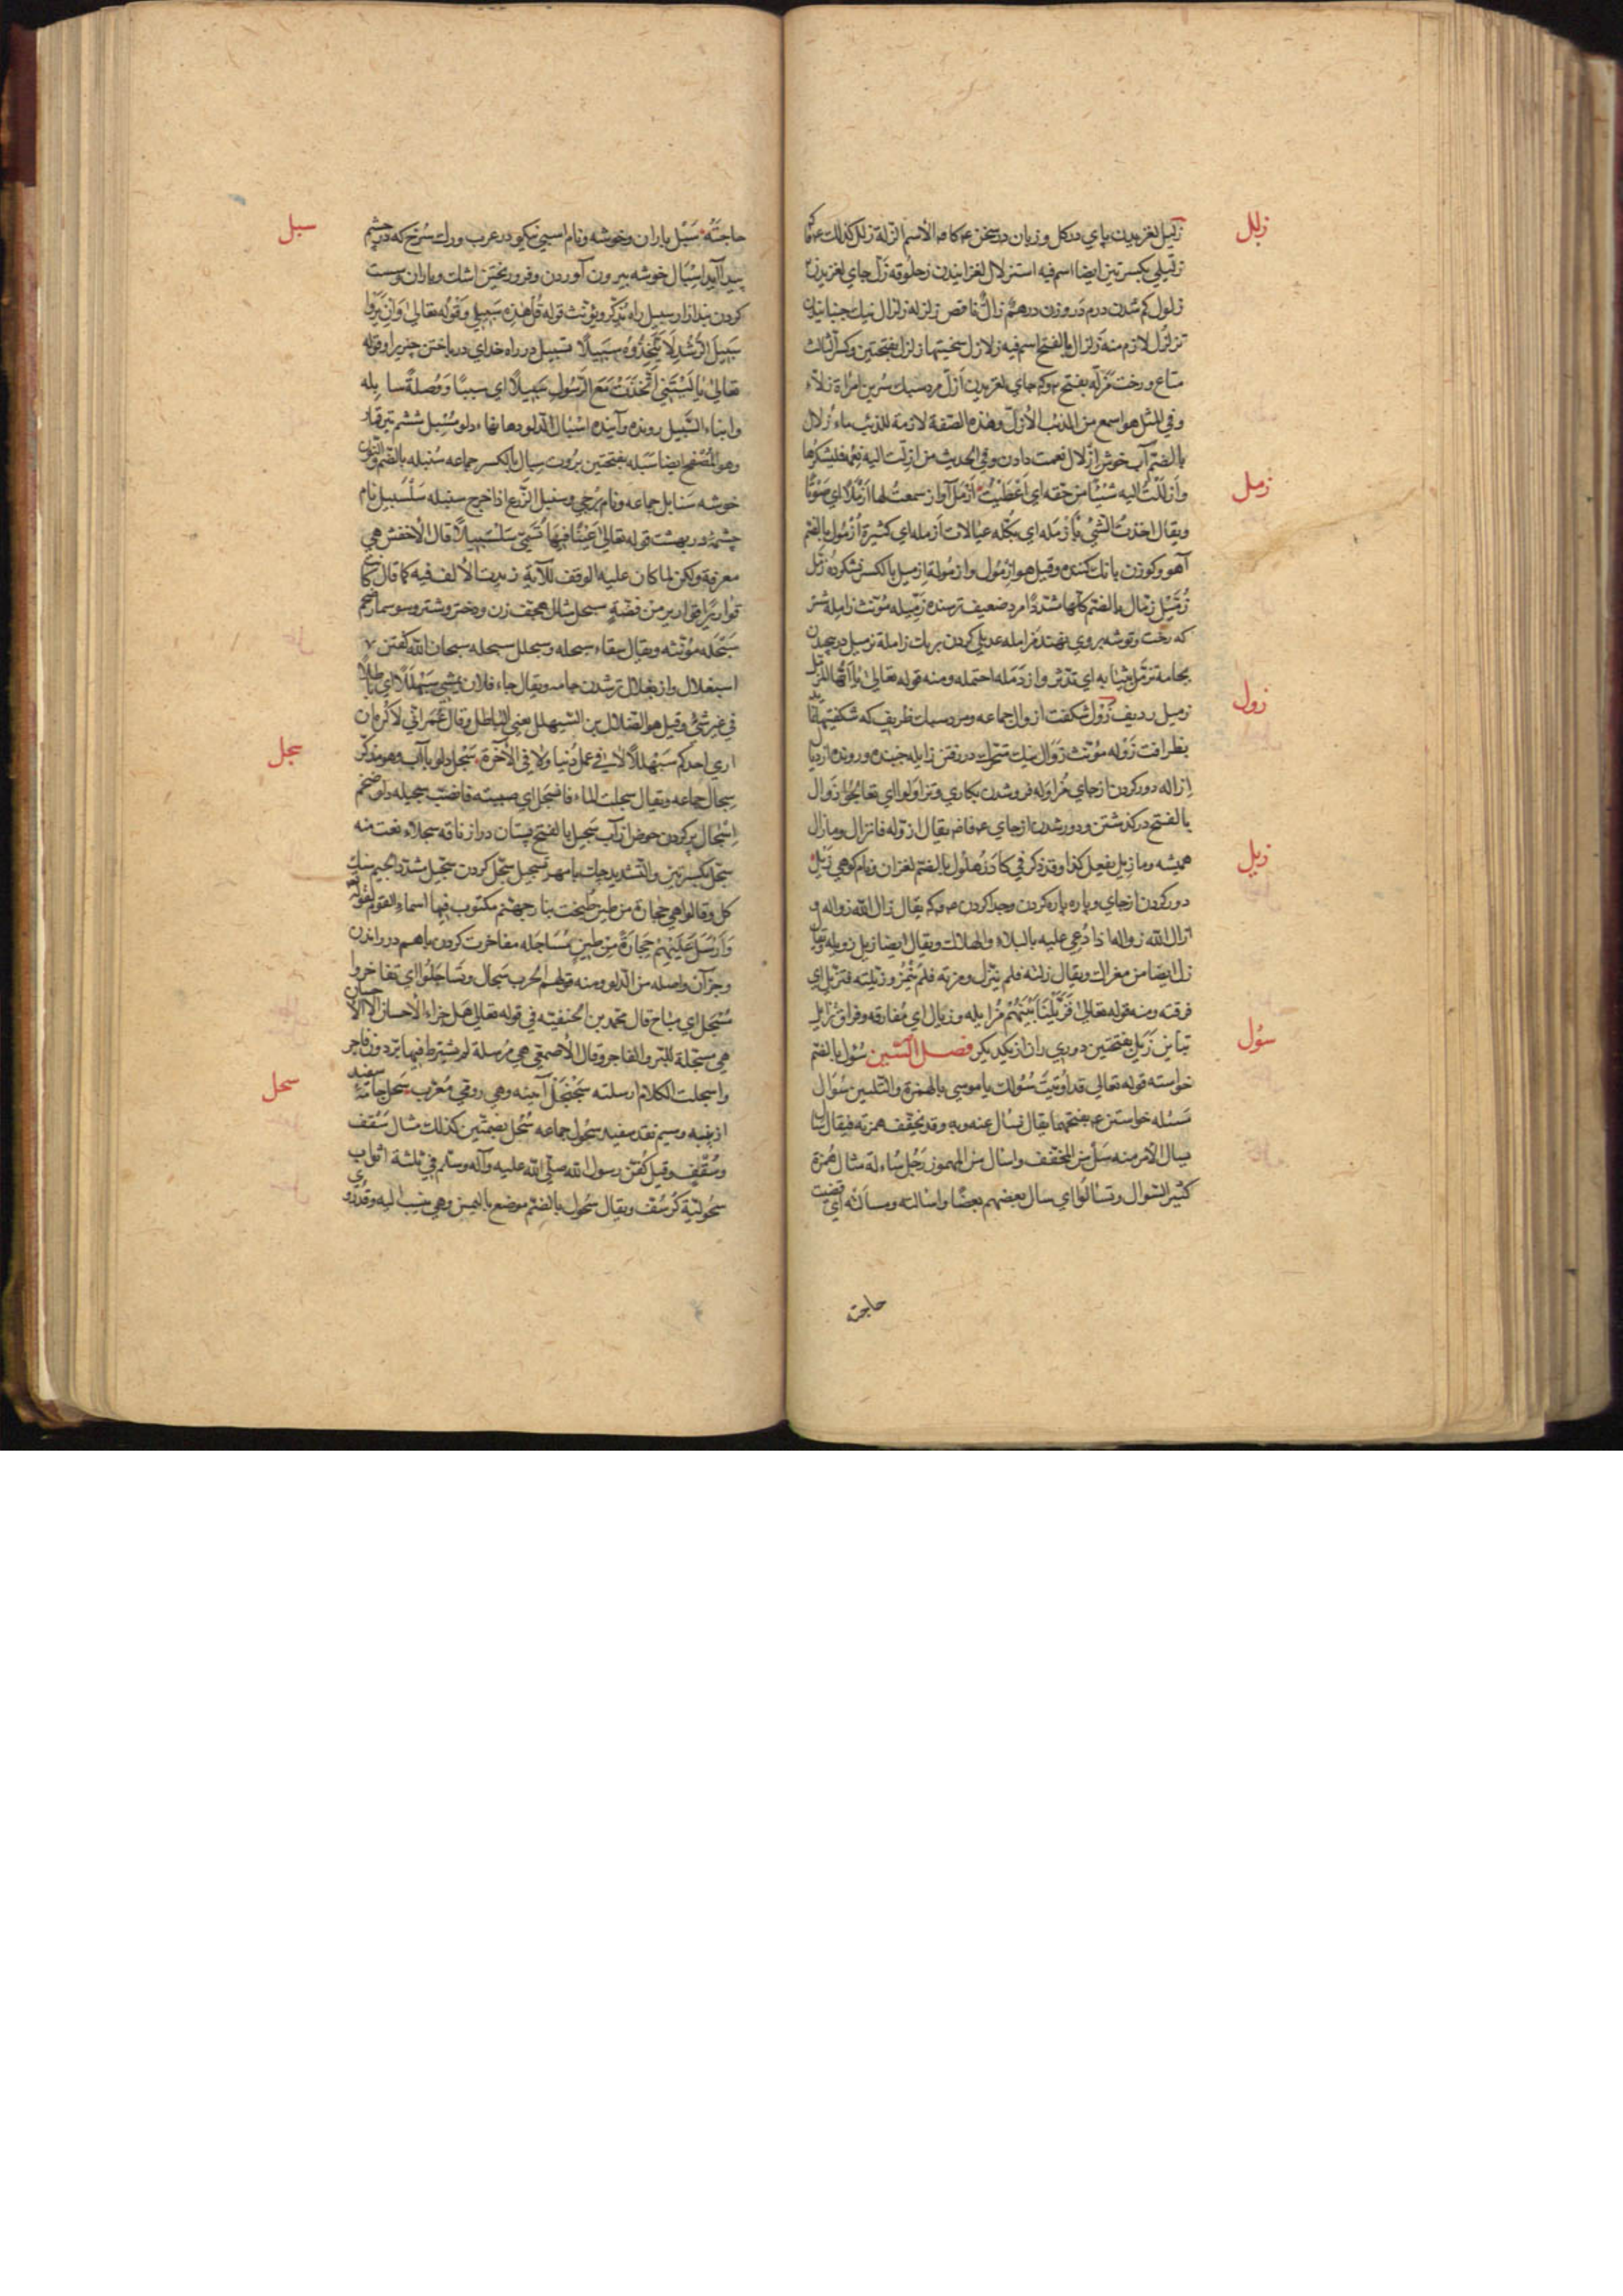 زلل
زلیل لغزیدن پای در گل و زبان در سخن الاسم الزلة زلل کذلک
زلیلی بکسرتین ایضا اسم فیه استزلال لغزانیدن زحلوقه زل جای لغزیدن
زلول کم شدن درم در وزن درهم زال ناقص زلزله زلزال نیک جنبانیدن
تزلزل لازم منه زلزال بالفتح اسم فیه زلازل سختیها زلزل بفتحتین وکسر ثالث
متاع و رخت مزله بفتح جای لغزیدن ازل مرد سبک سرین امراة زلاء
وفی المثل هو اسمع من الذئب الازل وهذه الصفة لازمة للذئب ماء زلال
بالضم آب خوش ازلال نعمت دادن وفی الحدیث من ازلت الیه نعمة فلیشکرها
زمل
وازللت الیه شیئا من حقه ای اعطیت ازمل آواز سمعت لها ازملا ای صوتا
ویقال اخذت الشیء بازمله ای بکله عیالات ازمله ای کثیرة ازمول بالضم
آهو و کوزن بانک کننده وقیل هو ازمول وازمولة ازمیل بالکسر نشکرده زمل
زمیل زمال بالضم کلها مشددا مرد ضعیف ترسنده زمیله مونث زامله شتر
که رخت وتوشه بروی نهند مزامله عدیلی کردن بر یک زاملة تزمیل در پیچیدن
بجامه تزمل بثیابه ای تدثر وازدمله احتمله ومنه قوله تعالی یا ایها المزمل
زول
زمیل ردیف زول شکفت ازوال جماعه ومرد سبک ظریف که شکفتیها
بظرافت زوله مونث زوال نیک متحرک در رفتن زایله جنبده و رونده
ازاله دور کردن از جای مزاوله فروشدن بکاری وتزاولوا ای تعالجوا زوال
بالفتح درکذشتن و دور شدن از جای یقال ازوله فانزال ومازال
زیل
همیشه ومازیل یفعل کذا وقد ذکر فی کاد زهلول بالضم لغزان ونام کوهی زیل
دور کردن از جای و پاره پاره کردن وجدا کردن یقال زال الله زواله و
ازال الله زواله اذا دعی علیه بالبلاء والهلاک ویقال ایضا زیل زویله ویقال
زل ایضا من معزاک ویقال زلته فلم ینزل ومزته فلم ینمز وزیلته فتزیل ای
فرقته ومنه قوله تعالی فزیلنا بینهم مزایله وزیال ای مفارقه وفراق تزایل
سؤل
تباین زیل بفتحتین دوری ران از یکدیکر فصل السین سؤل بالضم
خواسته قوله تعالی قد اوتیت سؤلک یا موسی بالهمزة والتلیین سؤال
مسئله خواستن بفتحهما یقال سال عنه وبه وقد تخفف همزته فیقال سال
یسال الامر منه سل من المخفف واسال من المهموز رجل سأله مثال همزة
کثیر السوال وتسائلوا ای سال بعضهم بعضا واسالته ومسألته ای قضیت
حاجته
سبل
حاجته سبل باران وخوشه ونام اسپی نیکو در عرب ورک سرخ که در چشم
پیدا آید اسبال خوشه بیرون آوردن وفرو ریختن اشک و باران وسست
کردن بند ازار سبیل راه یذکر ویؤنث قوله قل هذه سبیلی وقوله تعالی وان یروا
سبیل الرشد لا یتخذوه سبیلا تسبیل در راه خدای در باختن چیزیرا وقوله
تعالی یا لیتنی اتخذت مع الرسول سبیلا ای سببا ووصلة سابله
وابناء السبیل رونده وآینده اسبال الدلو دهانهاء دلو مسبل ششم تیر قمار
وهو المصفح ایضا سبله بفتحتین بروت سبال بالکسر جماعه سنبله بالضم والنون
خوشه سنابل جماعه ونام برجی وسنبل الزرع اذا خرج سنبله سلسبیل نام
چشمه در بهشت قوله تعالی عینا فیها تسمی سلسبیلا قال الاخفش هی
معرفة ولکن لما کان علیه الوقف للآیة زیدت الالف فیه کما قال کانت
قواریرا قواریر من فضة سبحل مثال هجف زن ودختر وشتر وسوسمار ضخم
سبحله مؤنثه ویقال سقاء سبحله وسبحلل سبحله سبحان الله کفتن
اسبغلال وازبغلال تر شدن جامه ویقال جاء فلان یمشی سبهللا ای باطلا
فی غیر شیء وقیل هو الضلال بن السبهلل یعنی الباطل وقال عمر انی لاکره ان
سجل
اری احدکم سبهللا لا فی عمل دنیا ولا فی الآخرة سجل دلو با آب وهو مذکر
سجال جماعه ویقال سجلت الماء فانسجل ای صببته فانصب سجیله دلو ضخم
اسجال پر کردن حوض از آب سجیل بالفتح پستان دراز ناقه سجلاء نعت منه
سجل بکسرتین والتشدید چک با مهر تسجیل سجل کردن سجیل مشددا الجیم سنک
کل وقالوا هی حجارة من طین طبخت بنار جهنم مکتوب فیها اسماء القوم لقوله تع
وارسل علیهم حجارة من طین مساجله مفاخرت کردن باهم در راندن
وجز آن واصله من الدلو ومنه قولهم الحرب سجال وتساجلوا ای تفاخروا
مسجل ای مباح قال محمد بن الحنفیه فی قوله تعالی هل جزاء الاحسان الا الاحسان
هی مسجلة للبر والفاجر وقال الاصمعی هی مرسلة لم یشترط فیها بر دون فاجر
سحل
واسجلت الکلام ارسلته سجنجل آئینه وهی رومی معرب سحل جامه سفید
از پنبه وسیم نقد سفید سحول جماعه سحل بضمتین کذلک مثال سقف
وسقف وقیل کفن رسول الله صلی الله علیه وآله وسلم فی ثلثة اثواب
سحولیة کرسف ویقال سحول بالضم موضع بالیمن وهی ینسب الیه وقد روی